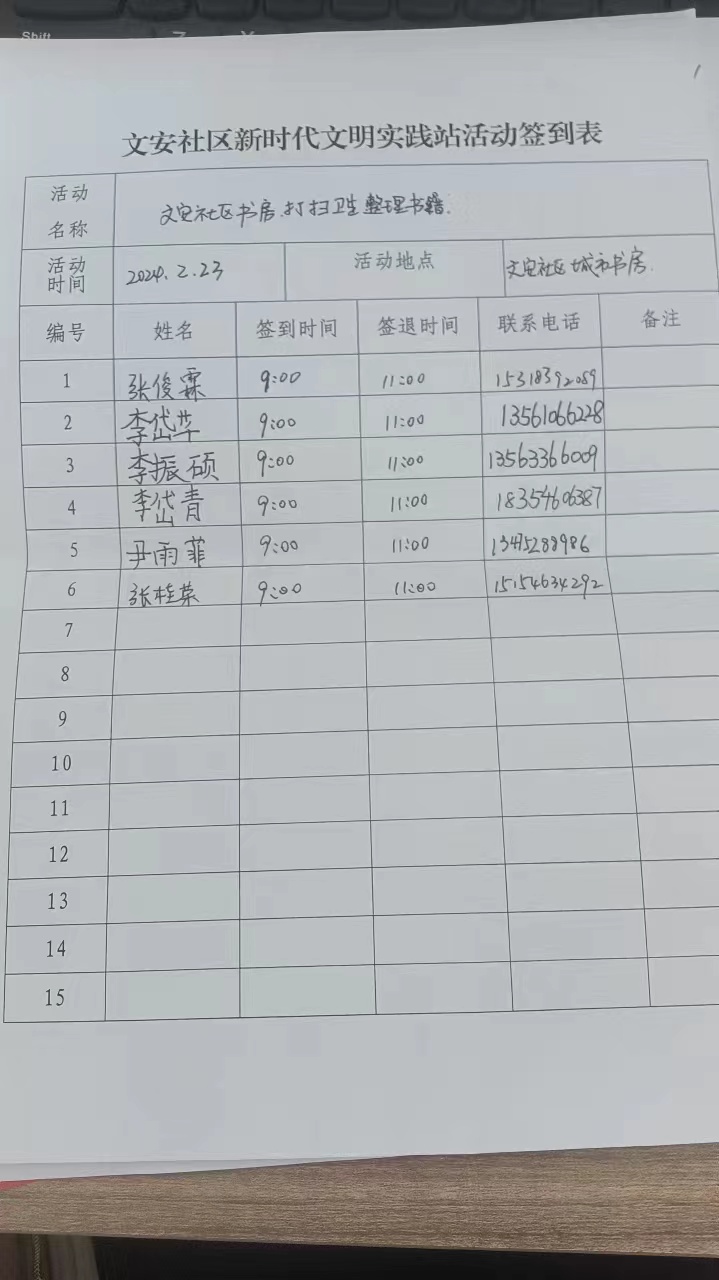 Shift Z X
文安社区新时代文明实践站活动签到表
活动名称 文安社区书房.打扫卫生整理书籍.
活动时间 2024.2.23 活动地点 文安社区城市书房.
编号 姓名 签到时间 签退时间 联系电话 备注
1 张俊霖 9:00 11:00 15318392089
2 李岱华 9:00 11:00 13561066228
3 李振硕 9:00 11:00 13563366009
4 李岱青 9:00 11:00 18354606387
5 尹雨菲 9:00 11:00 13475288986
6 张桂荣 9:00 11:00 15154634292
7
8
9
10
11
12
13
14
15